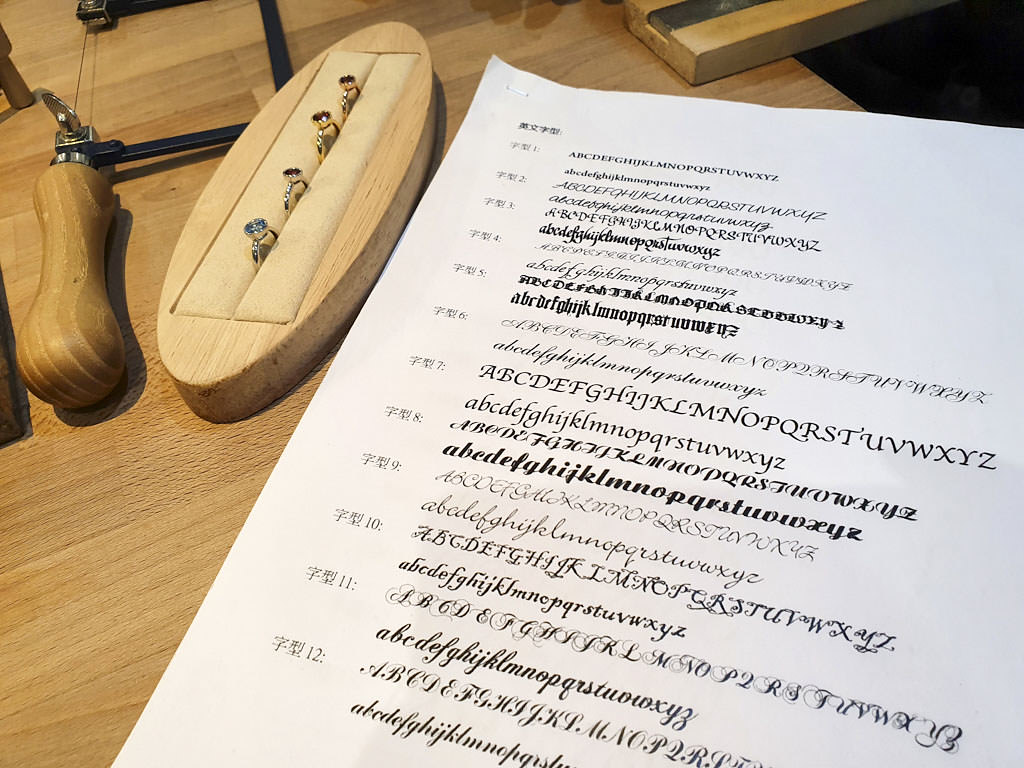 英文字型:
字型 1:
ABCDEFGHIJKLMNOPQRSTUVWXYZ
abcdefghijklmnopqrstuvwxyz
字型 2:
ABCDEFGHIJKLMNOPQRSTUVWXYZ
abcdefghijklmnopqrstuvwxyz
字型 3:
ABCDEFGHIJKLMNOPQRSTUVWXYZ
abcdefghijklmnopqrstuvwxyz
字型 4:
ABCDEFGHIJKLMNOPQRSTUVWXYZ
abcdefghijklmnopqrstuvwxyz
字型 5:
ABCDEFGHIJKLMNOPQRSTUVWXYZ
abcdefghijklmnopqrstuvwxyz
字型 6:
ABCDEFGHIJKLMNOPQRSTUVWXYZ
abcdefghijklmnopqrstuvwxyz
字型 7:
ABCDEFGHIJKLMNOPQRSTUVWXYZ
abcdefghijklmnopqrstuvwxyz
字型 8:
ABCDEFGHIJKLMNOPQRSTUVWXYZ
abcdefghijklmnopqrstuvwxyz
字型 9:
ABCDEFGHIJKLMNOPQRSTUVWXYZ
abcdefghijklmnopqrstuvwxyz
字型 10:
ABCDEFGHIJKLMNOPQRSTUVWXYZ
abcdefghijklmnopqrstuvwxyz
字型 11:
ABCDEFGHIJKLMNOPQRSTUVWXYZ
abcdefghijklmnopqrstuvwxyz
字型 12:
ABCDEFGHIJKLMNOPQRST
abcdefghijklmnopqrstu